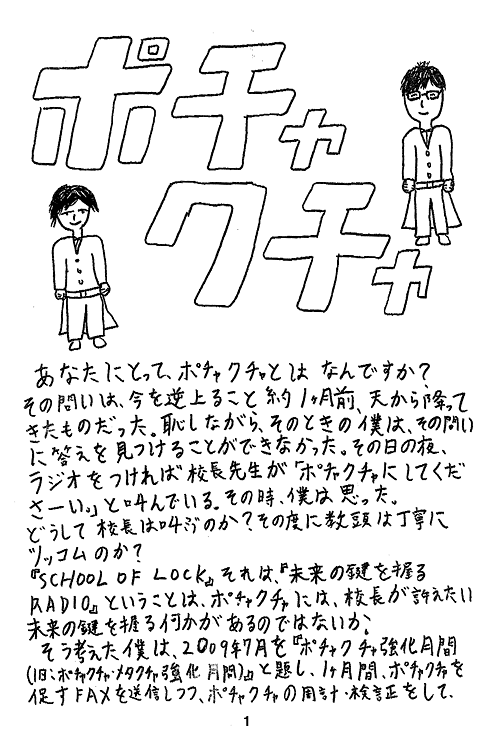 ポチャ
クチャ
あなたにとって、ポチャクチャとは なんですか?
その問いは、今を逆上ること約1ヶ月前、天から降って
きたものだった。恥しながら、そのときの僕は、その問い
に答えを見つけることができなかった。その日の夜、
ラジオをつければ校長先生が「ポチャクチャにしてくだ
さーい。」と叫んでいる。その時、僕は思った。
どうして校長は叫ぶのか?その度に教頭は丁寧に
ツッコムのか?
『SCHOOL OF LOCK』それは、『未来の鍵を握る
RADIO』ということは、ポチャクチャには、校長が訴えたい
未来の鍵を握る何かがあるのではないか。
そう考えた僕は、2009年7月を『ポチャクチャ強化月間
(旧:ポチャクチャ・メタクチャ強化月間)』と題し、1ヶ月間、ポチャクチャを
促すFAXを送信しつつ、ポチャクチャの周計・検証をして、
1